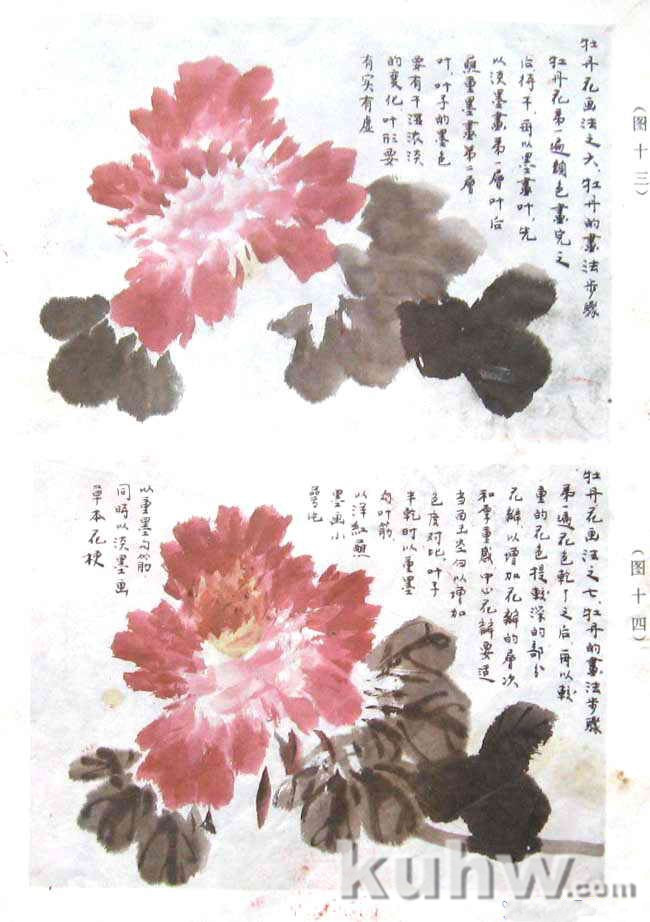 (图十三)
牡丹花画法之六、牡丹的畫法步驟
牡丹花第一遍顏色畫完之
后待干,再以墨畫叶,先
以淡墨畫第一層叶后
蘸重墨畫第二層
叶,叶子的墨色
要有干濕浓淡
的变化,叶形要
有实有虚
(图十四)
牡丹花画法之七、牡丹的畫法步驟
第一遍花色乾了之后,再以較
重的花色提較深的部分
花瓣以增加花瓣的層次
和厚重感中心花瓣要适
当
以增加
色度对比,叶子
半乾时以重墨
勾叶筋
以洋红蘸
墨画小
以重墨勾
筋
同時以淡墨画
草本花梗
kuhw.com